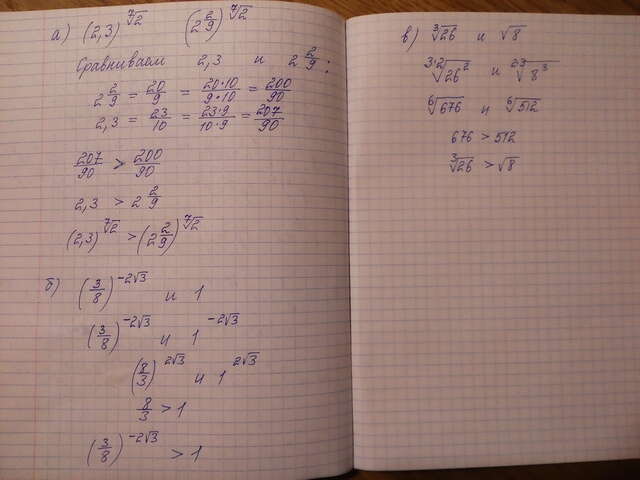 а) (2,3)^⁷√2   (2 2/9)^⁷√2
Сравниваем 2,3 и 2 2/9:
2 2/9 = 20/9 = 20·10/9·10 = 200/90
2,3 = 23/10 = 23·9/10·9 = 207/90
207/90 > 200/90
2,3 > 2 2/9
(2,3)^⁷√2 > (2 2/9)^⁷√2
б) (3/8)^-2√3 и 1
(3/8)^-2√3 и 1^-2√3
(8/3)^2√3 и 1^2√3
8/3 > 1
(3/8)^-2√3 > 1
в) ³√26 и √8
³·²√26² и ²·³√8³
⁶√676 и ⁶√512
676 > 512
³√26 > √8